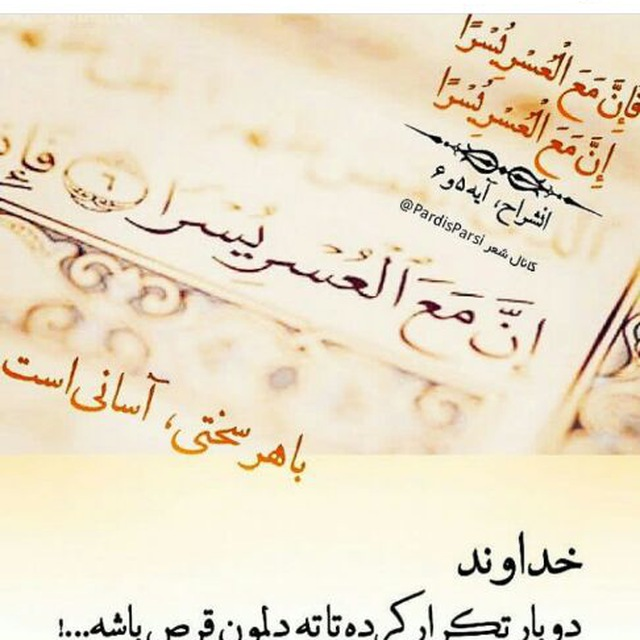 فَإِنَّ مَعَ الْعُسْرِ يُسْرًا
إِنَّ مَعَ الْعُسْرِ يُسْرًا
انشراح، آیه ۵ و ۶
کانال شعر PardisParsi@
إِنَّ مَعَ الْعُسْرِ يُسْرًا ٦ فَإِ
با هر سختی، آسانی است
خداوند
دو بار تکرار کرده تا ته دلمون قرص باشه...!